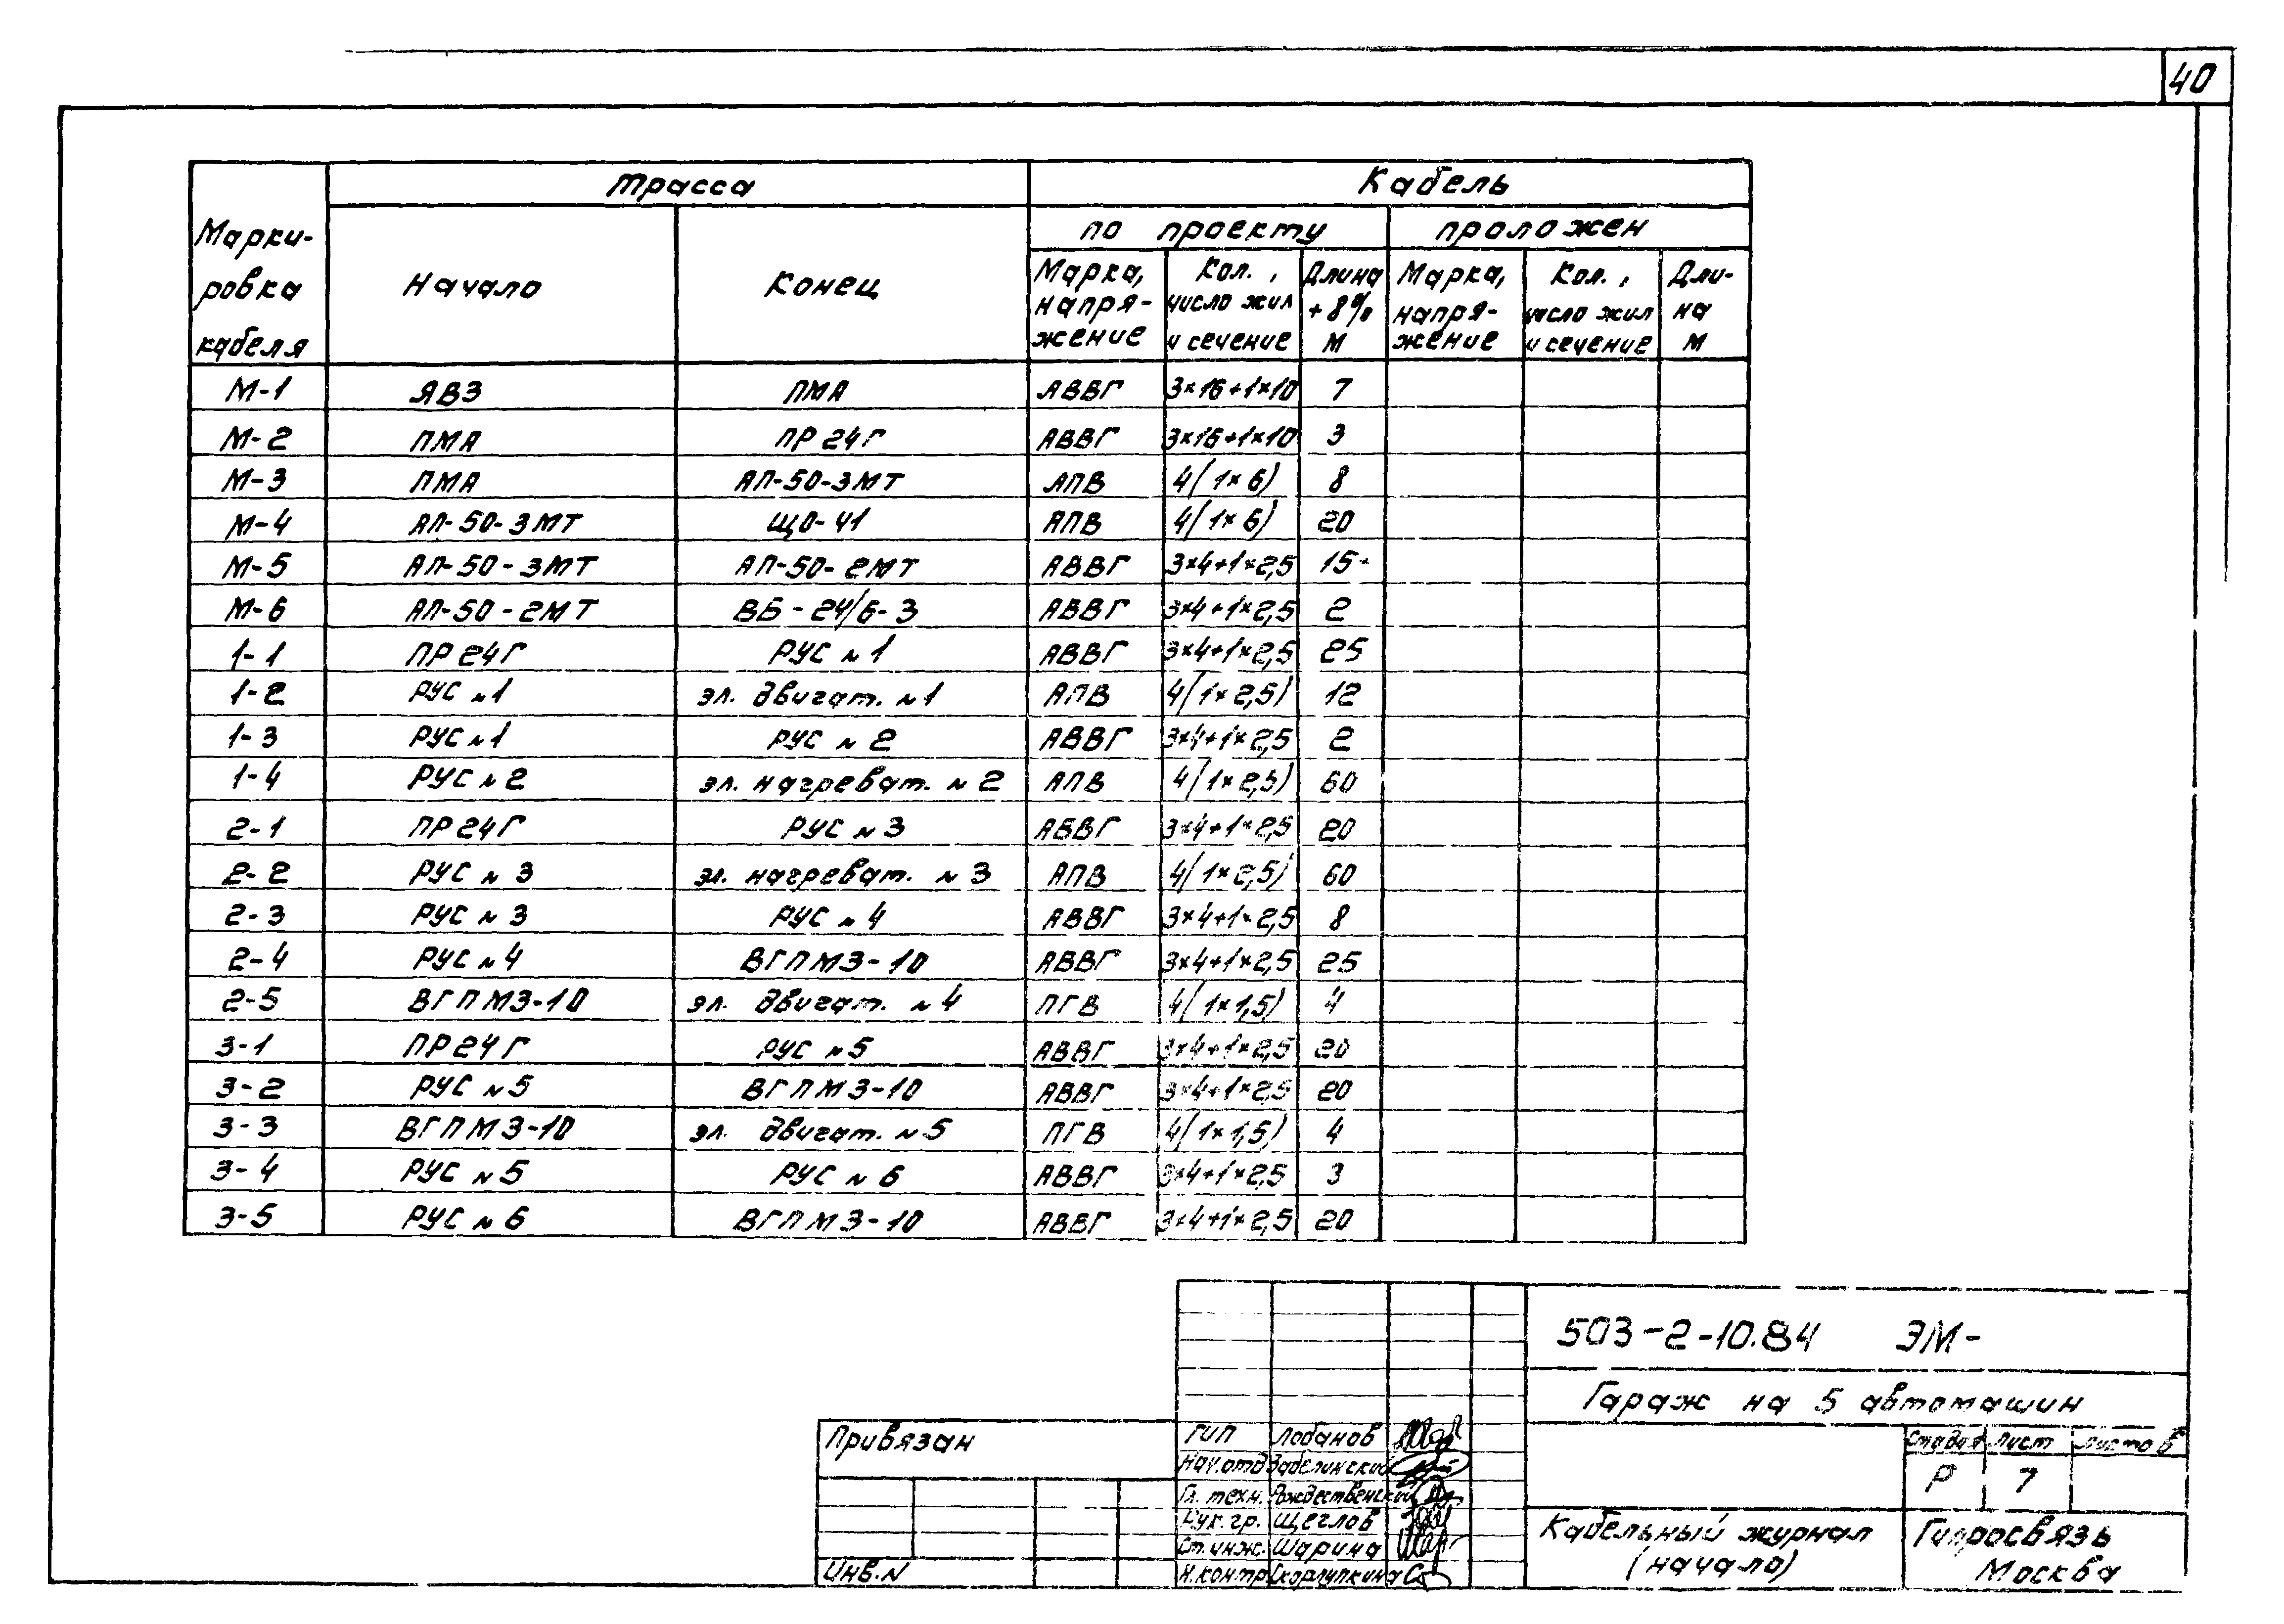 40
Трасса
Кабель
Марки-
ровка
кабеля
Начало
Конец
по проекту
проложен
Марка,
напря-
жение
Кол.,
число жил
и сечение
Длина
+8%
м
Марка,
напря-
жение
Кол.,
число жил
и сечение
Дли-
на
м
М-1 ЯВЗ ПМА АВВГ 3×16+1×10 7
М-2 ПМА ПР24Г АВВГ 3×16+1×10 3
М-3 ПМА АП-50-3МТ АПВ 4(1×6) 8
М-4 АП-50-3МТ ЩО-41 АПВ 4(1×6) 20
М-5 АП-50-3МТ АП-50-2МТ АВВГ 3×4+1×2,5 15
М-6 АП-50-2МТ ВБ-24/6-3 АВВГ 3×4+1×2,5 2
1-1 ПР24Г РУС №1 АВВГ 3×4+1×2,5 25
1-2 РУС №1 эл. двигат. №1 АПВ 4(1×2,5) 12
1-3 РУС №1 РУС №2 АВВГ 3×4+1×2,5 2
1-4 РУС №2 эл. нагреват. №2 АПВ 4(1×2,5) 60
2-1 ПР24Г РУС №3 АВВГ 3×4+1×2,5 20
2-2 РУС №3 эл. нагреват. №3 АПВ 4(1×2,5) 60
2-3 РУС №3 РУС №4 АВВГ 3×4+1×2,5 8
2-4 РУС №4 ВГПМЗ-10 АВВГ 3×4+1×2,5 25
2-5 ВГПМЗ-10 эл. двигат. №4 ПГВ 4(1×1,5) 4
3-1 ПР24Г РУС №5 АВВГ 3×4+1×2,5 20
3-2 РУС №5 ВГПМЗ-10 АВВГ 3×4+1×2,5 20
3-3 ВГПМЗ-10 эл. двигат. №5 ПГВ 4(1×1,5) 4
3-4 РУС №5 РУС №6 АВВГ 3×4+1×2,5 3
3-5 РУС №6 ВГПМЗ-10 АВВГ 3×4+1×2,5 20
503-2-10.84 ЭМ-
Гараж на 5 автомашин
Привязан
Инв.N
ГИП Лобанов
Нач.отд Забелинский
Гл. техн. Рождественский
Рук.гр. Щеглов
Ст.инж. Шарина
Н.контр Скорлупкина
Стадия Лист Листов
Р 7
Кабельный журнал
(начало)
Гипросвязь
Москва